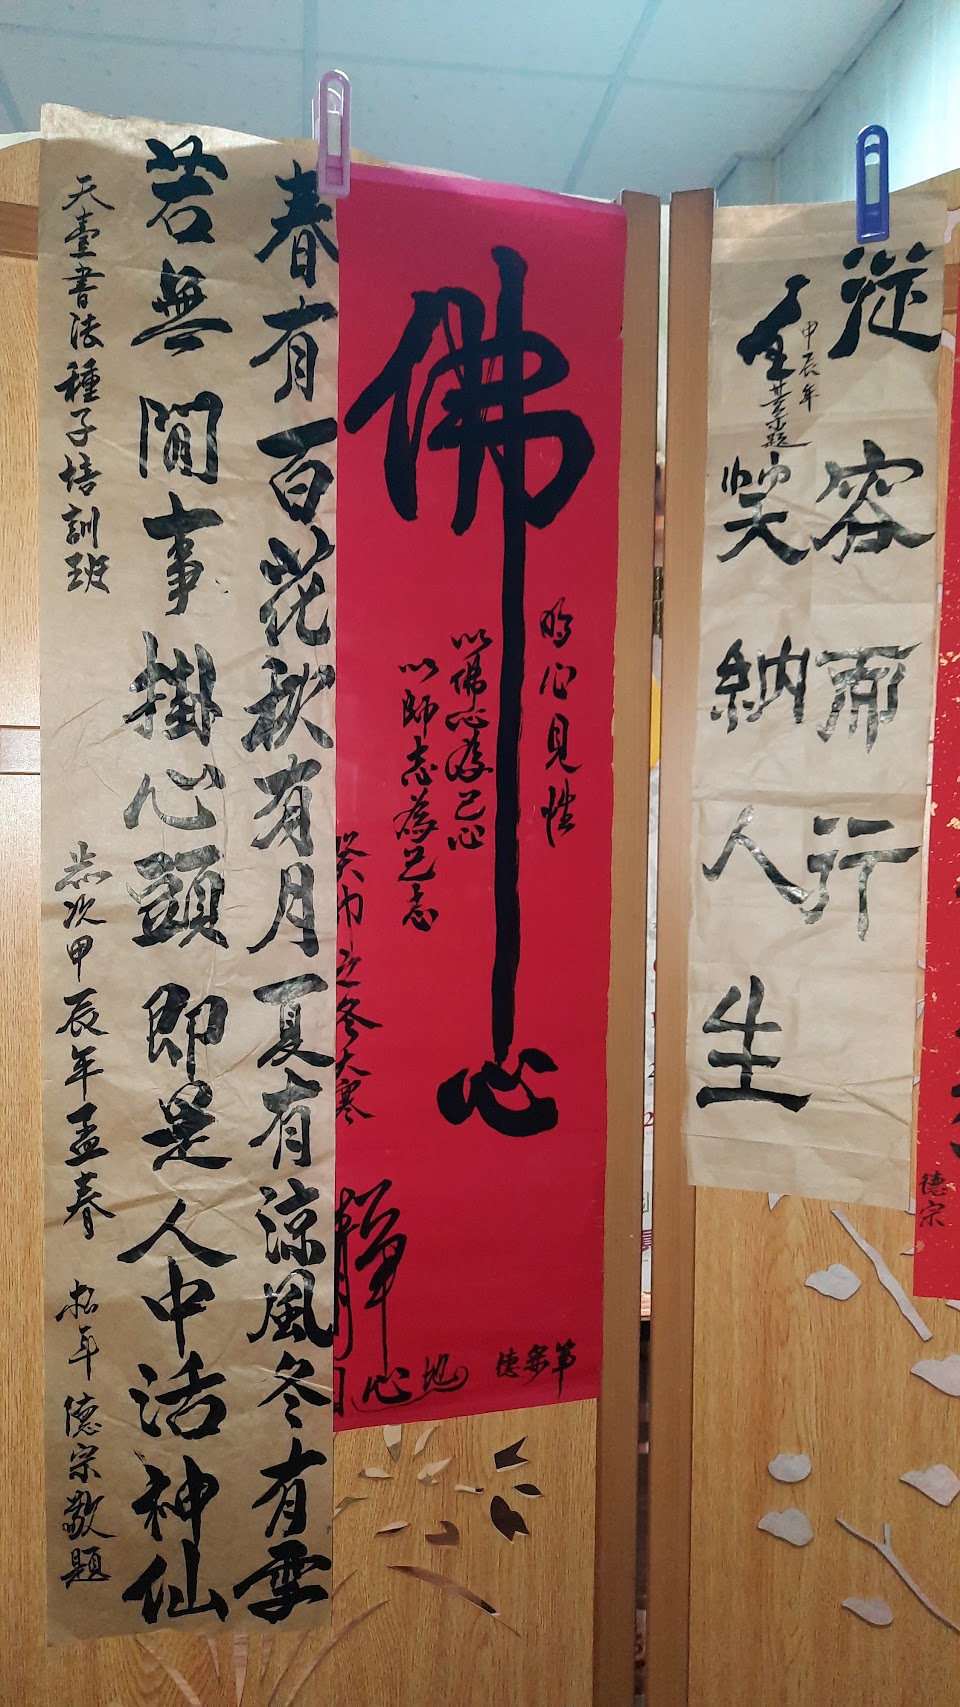 春有百花秋有月夏有涼風冬有雪
若無閒事掛心頭即是人中活神仙
天臺書法種子培訓班
歲次甲辰年孟春
松年 德宗敬題
佛心
明心見性
以佛心為己心
以師志為己志
癸卯之冬大寒
靜
心地
德宗筆
從容而行
笑納人生
甲辰年
德宗